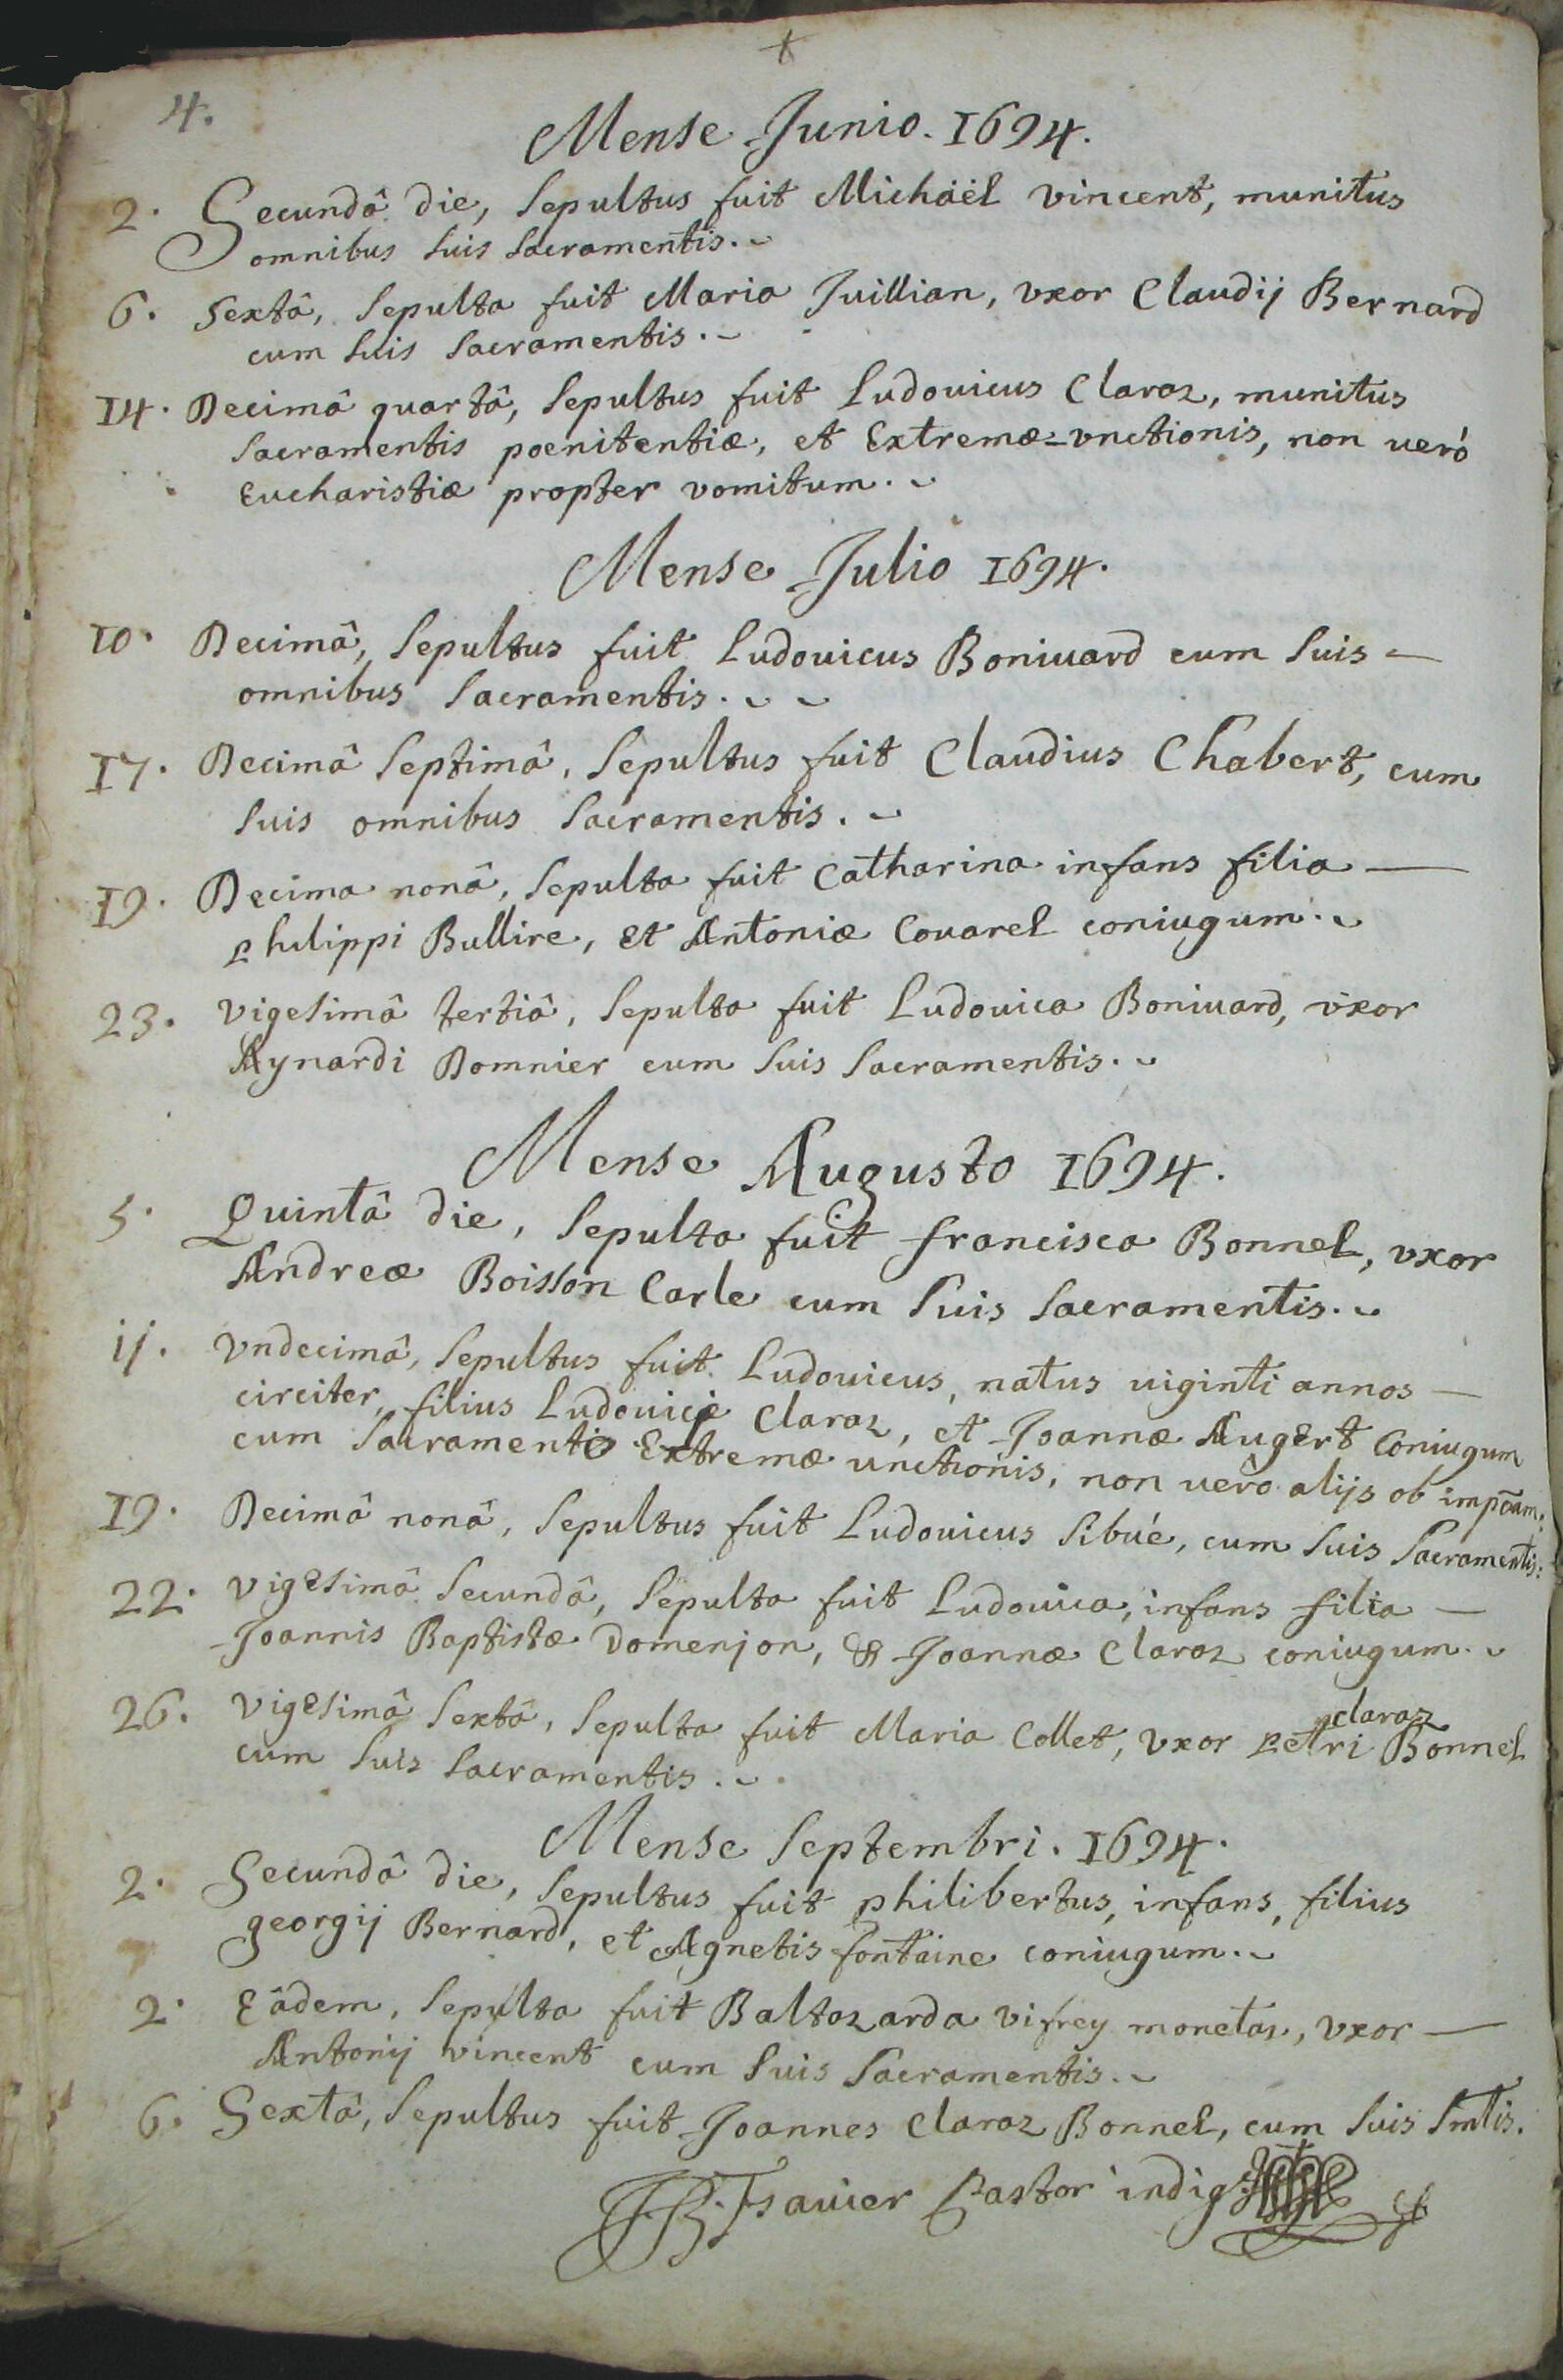 4.
Mense Junio. 1694.
2. Secundâ die, sepultus fuit Michäel vincent, munitus
omnibus suis sacramentis.
6. Sextâ, sepulta fuit Maria Juillian, vxor Claudij Bernard
cum suis sacramentis.
14. Decimâ quartâ, sepultus fuit Ludouicus Claraz, munitus
sacramentis poenitentiæ, et Extremæ-vnctionis, non uerò
Eucharistiæ propter vomitum.
Mense Julio 1694.
10. Decimâ, sepultus fuit Ludouicus Boniuard cum suis
omnibus sacramentis.
17. Decimâ septimâ, sepultus fuit Claudius Chabert, cum
suis omnibus sacramentis.
19. Decima nonâ, sepulta fuit Catharina infans filia
philippi Bullire, et Antoniæ Couarel coniugum.
23. vigesimâ tertiâ, sepulta fuit Ludouica Boniuard, vxor
Aynardi Domnier cum suis sacramentis.
Mense Augusto 1694.
5. Quintâ die, sepulta fuit francisca Bonnel, vxor
Andreæ Boisson Carle cum suis sacramentis.
11. vndecimâ, sepultus fuit Ludouicus, natus uiginti annos
circiter, filius Ludouici Claraz, et Joannæ Augert Coniugum
cum sacramento Extremæ unctionis, non uerò alijs ob impœam:
19. Decimâ nonâ, sepultus fuit Ludouicus Sibué, cum suis sacramentis:
22. vigesimâ secundâ, sepulta fuit Ludouica, infans filia
Joannis Baptistæ Domenjon, & Joannæ Claraz coniugum.
claraz
26. vigesimâ sextâ, sepulta fuit Maria Collet, vxor petri Bonnel
cum suis sacramentis.
Mense septembri. 1694.
2. Secundâ die, sepultus fuit philibertus, infans, filius
georgij Bernard, et Agnetis fontaine coniugum.
2. Eâdem, sepulta fuit Baltazarda vifrey monetaz, vxor
Antonij vincent cum suis sacramentis.
6. Sextâ, sepultus fuit Joannes Claraz Bonnel, cum suis Smtis.
Pastor indig